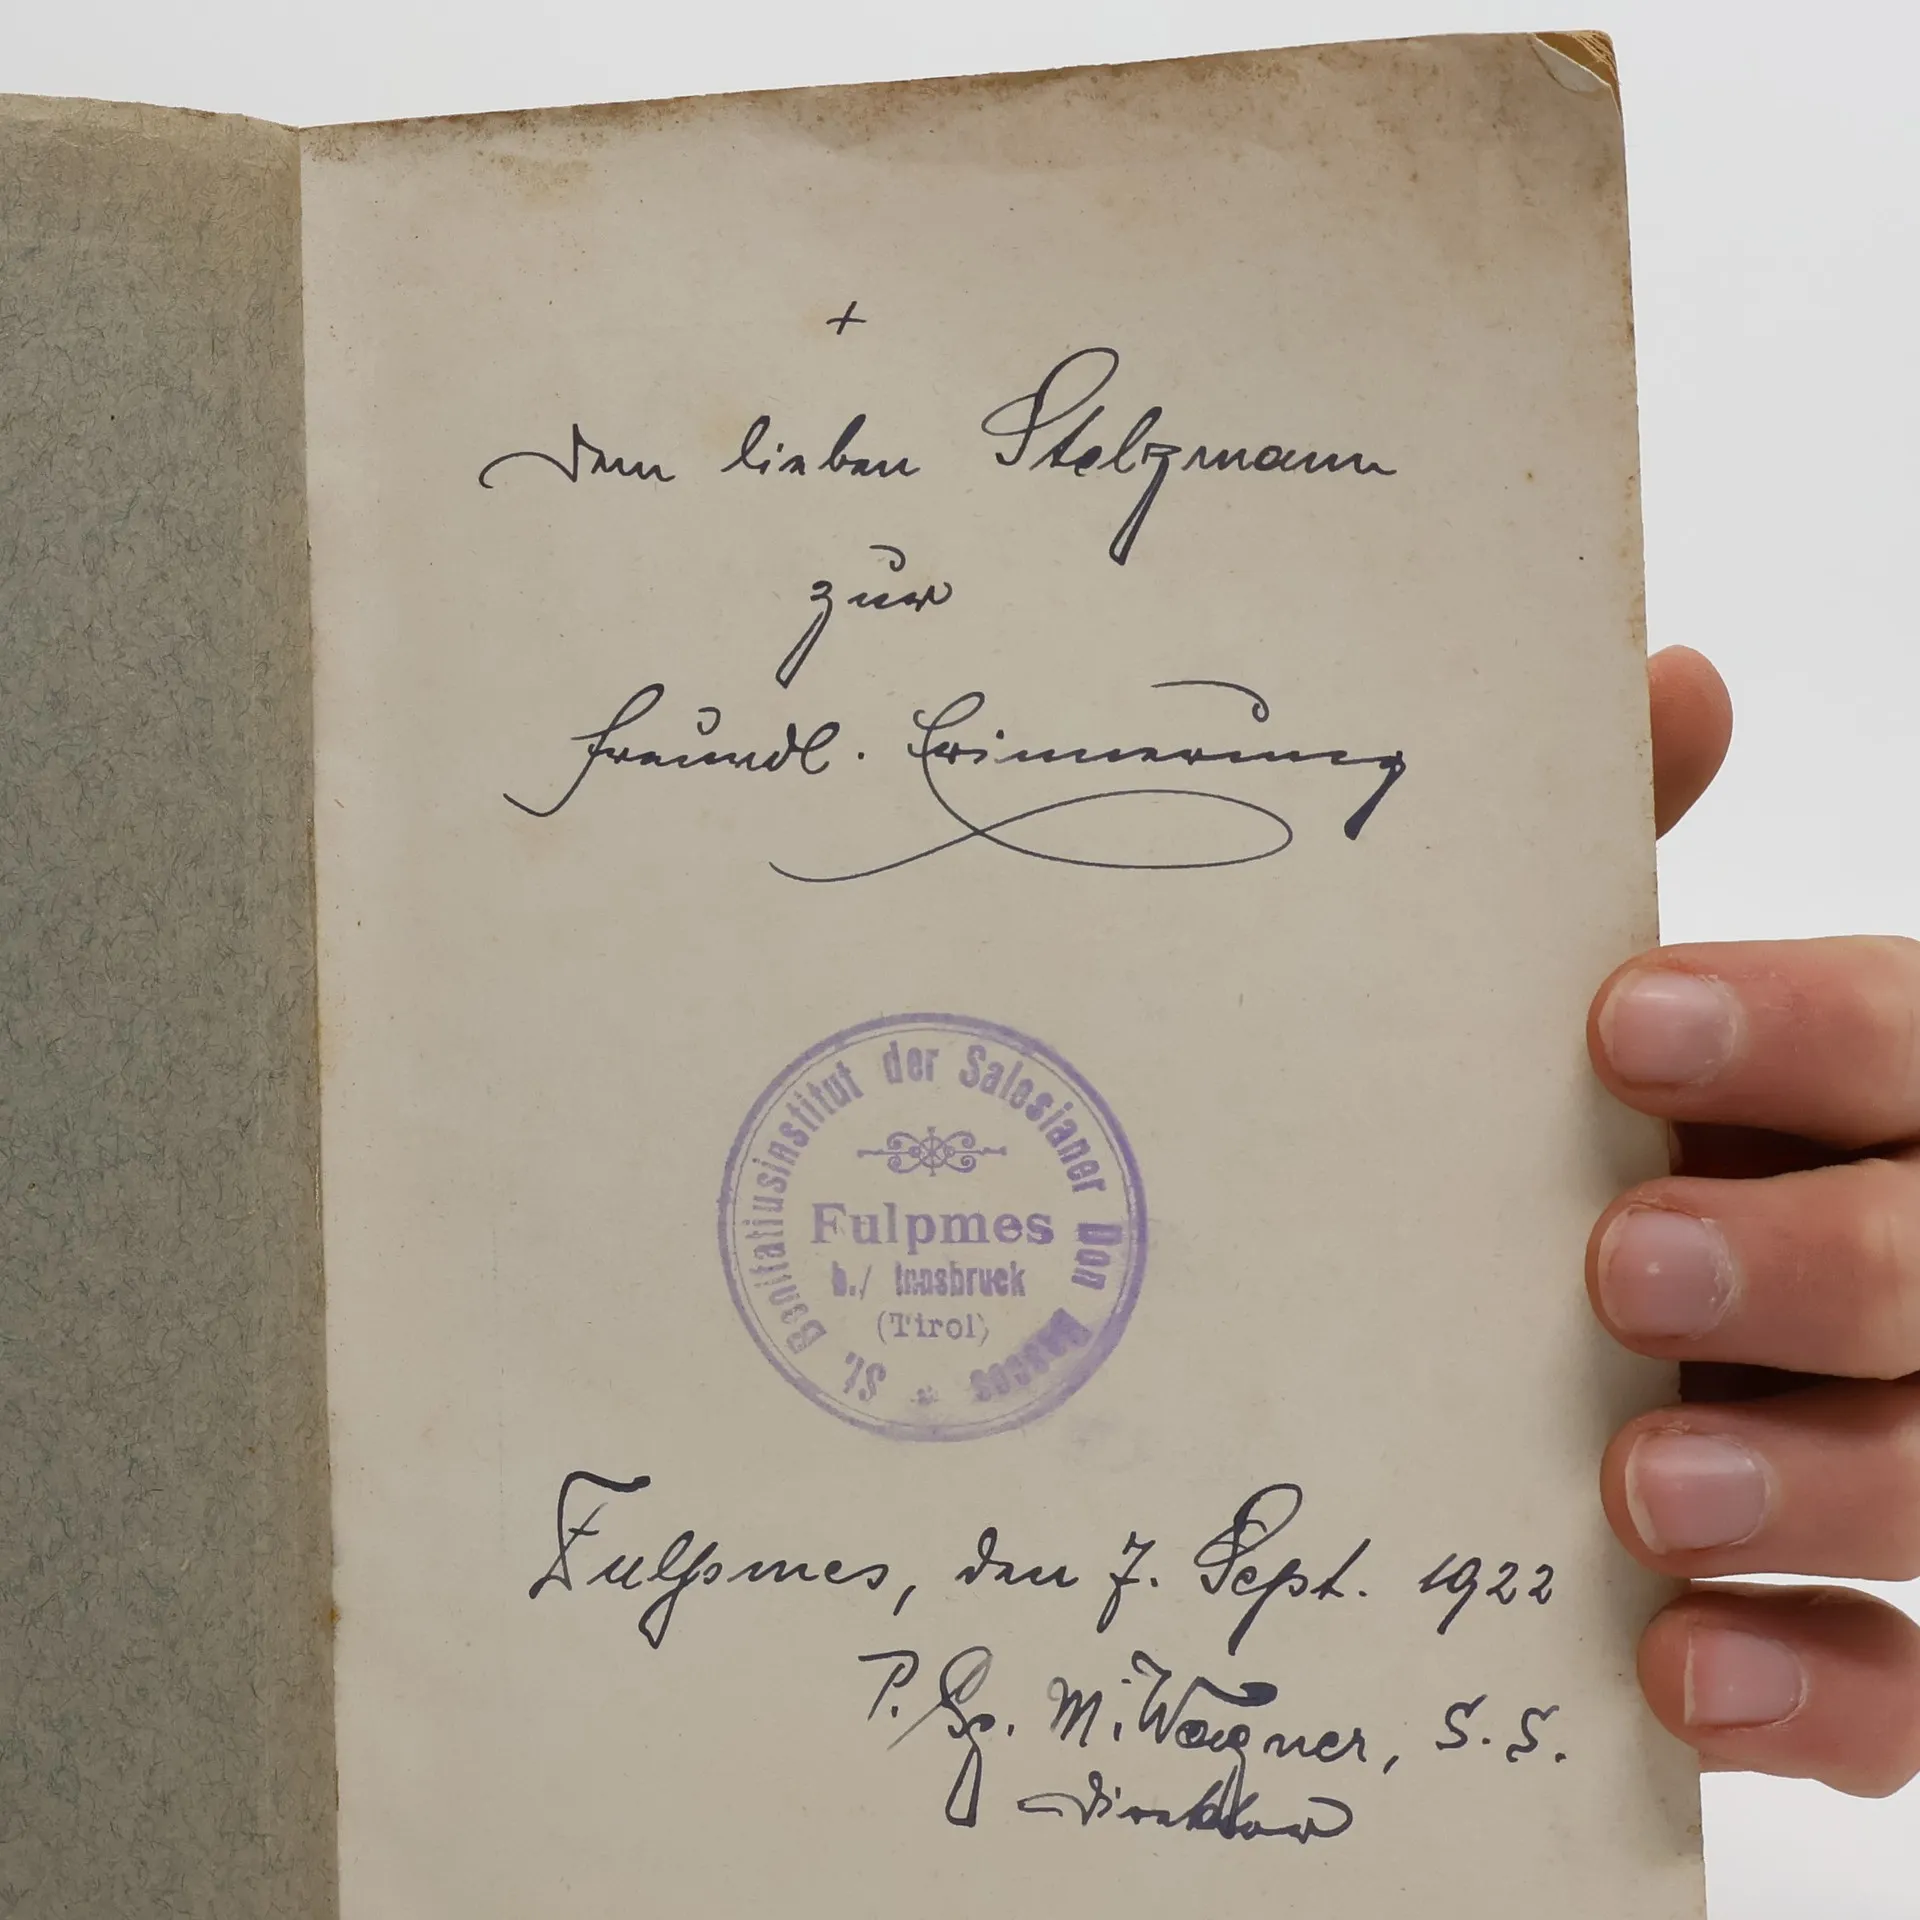 +
Dem lieben Stelzmann
zur
freundl. Erinnerung
St. Bonifatiusinstitut der Salesianer Don Boscos *
Fulpmes
b./ Innsbruck
(Tirol)
Fulpmes, den 7. Sept. 1922
P. Gg. M. Wagner, S. S.
Direktor